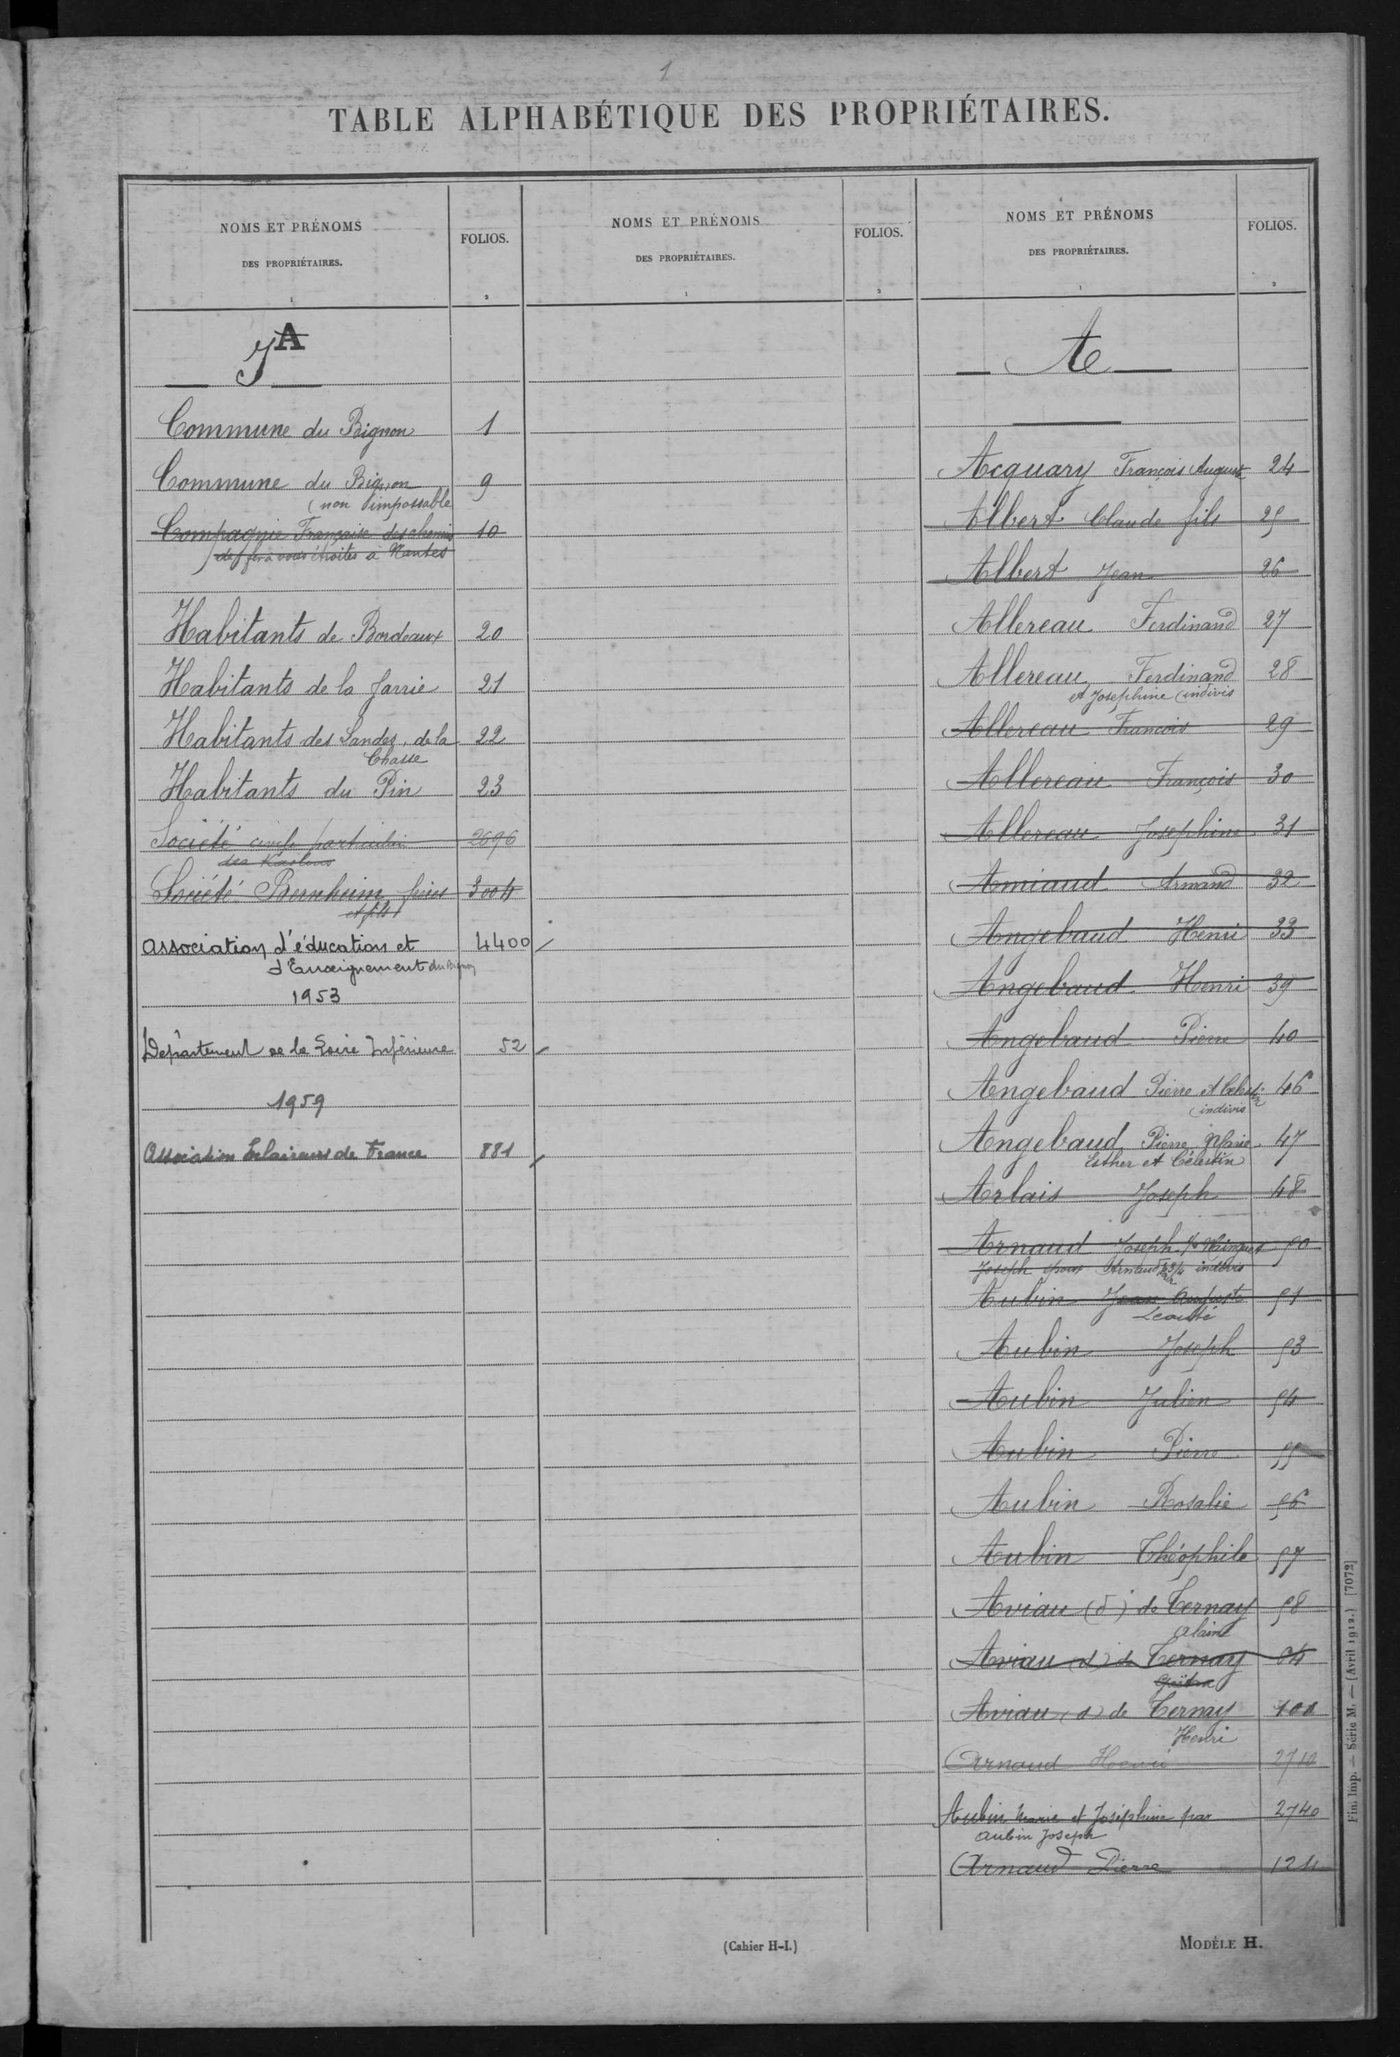 1
TABLE ALPHABÉTIQUE DES PROPRIÉTAIRES.
NOMS ET PRÉNOMS
DES PROPRIÉTAIRES.
FOLIOS.
1
2
A
Commune du Bignon 1
Commune du Bignon 9
(non imposable
Compagnie Française des chemins 10
de fer à voies étroites à Nantes
Habitants de Bordeaux 20
Habitants de la Jarrie 21
Habitants des Landes de la 22
Chasse
Habitants du Pin 23
Société civile particulière 2696
des
Société Bernheim frères 3004
et fils
Association d'éducation et 4400
d'Enseignement du Bignon
1953
Département de la Loire Inférieure 52
1959
Association Eclaireurs de France 881
NOMS ET PRÉNOMS
DES PROPRIÉTAIRES.
FOLIOS.
1
2
NOMS ET PRÉNOMS
DES PROPRIÉTAIRES.
FOLIOS.
1
2
A
Acquary François Auguste 24
Albert Claude fils 25
Albert Jean 26
Allereau Ferdinand 27
Allereau Ferdinand 28
et Joséphine indivis
Allereau François 29
Allereau François 30
Allereau Joséphine 31
Amiaud Armand 32
Angebaud Henri 33
Angebaud Henri 39
Angebaud Pierre 40
Angebaud Pierre et Célestin 46
indivis
Angebaud Pierre Marie 47
Esther et Célestin
Arlais Joseph 48
Arnaud Joseph 50
Joseph époux Arnaud 3/4 indivis
Aubin Jean Auguste 51
Aubin Joseph 53
Aubin Julien 54
Aubin Pierre 55
Aubin Rosalie 56
Aubin Théophile 57
Aviau (d') de Ternay 58
Alain
Aviau (d') de Ternay 64
Aviau (d') de Ternay 100
Henri
Arnaud Henri 2710
Aubin Marie et Joséphine par 2740
Aubin Joseph
Arnaud Pierre
(Cahier H-I.)
MODÈLE H.
Fini Imp. — Série M. — (Avril 1912.) [7072]